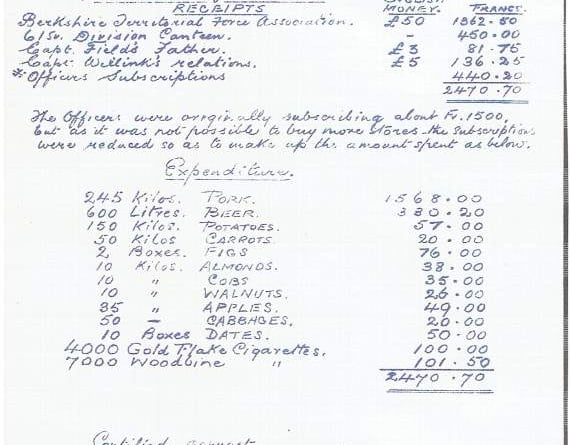 RECEIPTS MONEY. FRANCS.
Berkshire Territorial Force Association. £50 1362.50
61st. Division Canteen. - 450.00
Capt. Field's Father. £3 81.75
Capt. Willink's relations. £5 136.25
* Officers Subscriptions 440.20
2470.70
The Officers were originally subscribing about Fr.1500,
but as it was not possible to buy more stores the subscriptions
were reduced so as to make up the amount spent as below.
Expenditure.
245 Kilos. PORK. 1568.00
600 Litres. BEER. 330.20
150 Kilos. POTATOES. 57.00
50 Kilos CARROTS. 20.00
2 Boxes. FIGS 76.00
10 Kilos. ALMONDS. 38.00
10 " COBS 35.00
10 " WALNUTS. 26.00
35 " APPLES. 49.00
50 — CABBAGES. 20.00
10 Boxes DATES. 50.00
4000 Gold Flake Cigarettes. 100.00
7000 Woodbine " 101.50
2470.70
Certified correct